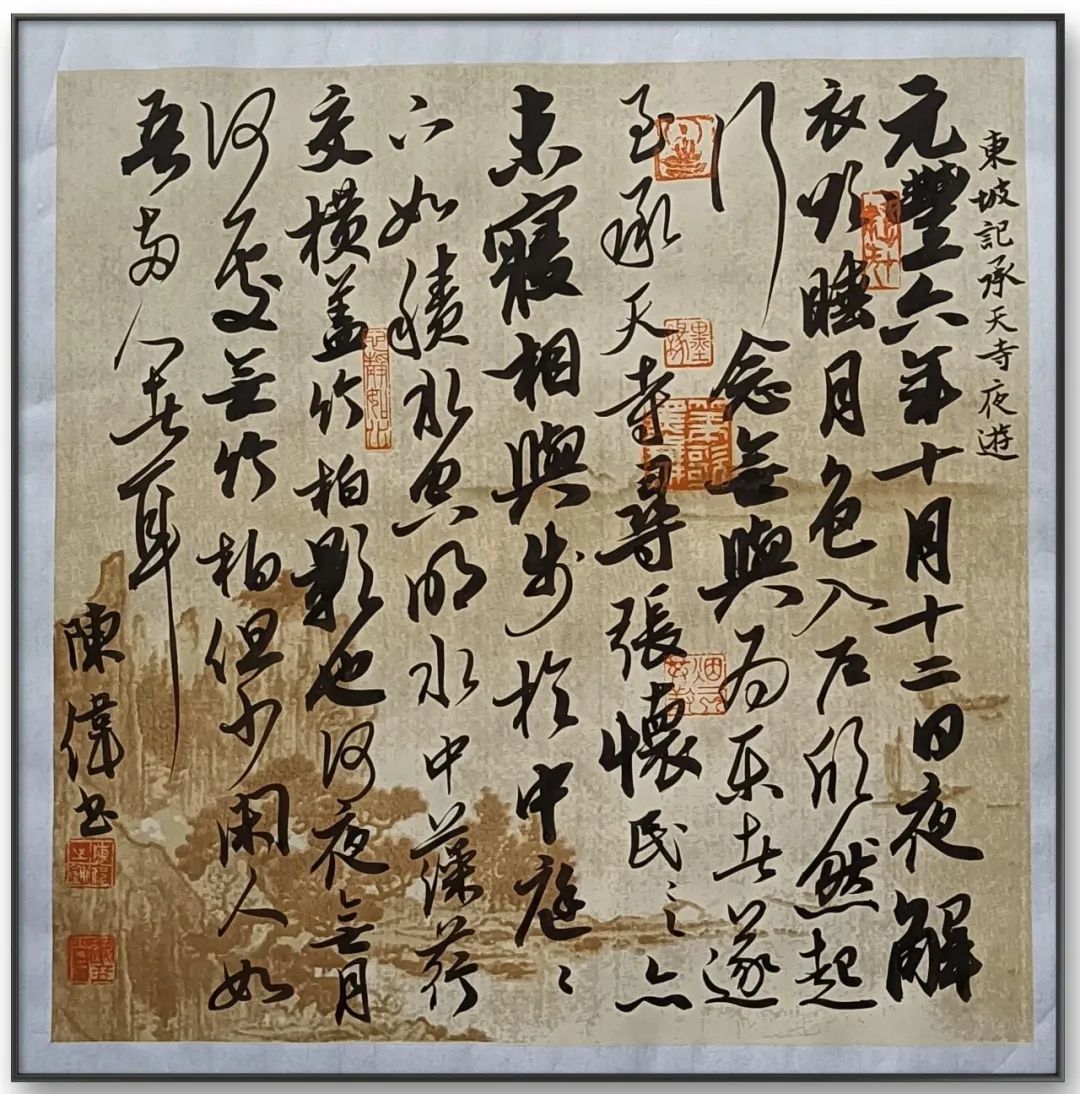 東坡記承天寺夜遊
元豐六年十月十二日夜解
衣欲睡月色入户欣然起
行念無與为乐者遂
至承天寺尋張懷民々亦
未寢相與步於中庭々
下如積水空明水中藻荇
交橫盖竹柏影也何夜無月
何處無竹柏但少闲人如
吾兩人者耳
陳偉书